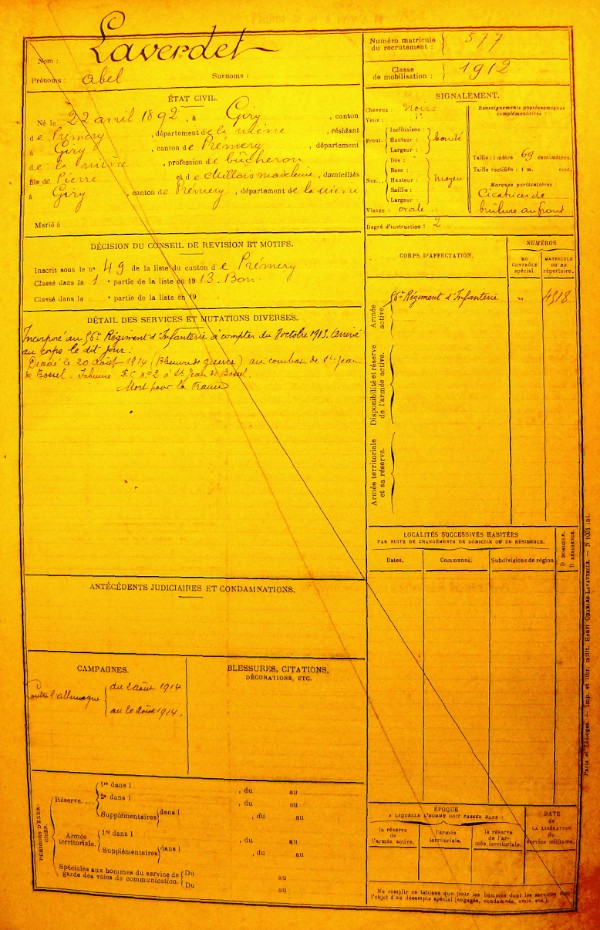 Nom : Laverdet
Prénoms : abel Surnoms :
Numéro matricule du recrutement : 577
Classe de mobilisation : 1912
ÉTAT CIVIL.
Né le 22 avril 1892, à Giry, canton
de Prémery, département de la Nièvre, résidant
à Giry, canton de Prémery, département
de la Nièvre, profession de bûcheron
fils de Pierre et de Millois madeleine, domiciliés
à Giry, canton de Prémery, département de la Nièvre
Marié à
SIGNALEMENT.
Cheveux noirs
Yeux
Front. Inclinaison :
Hauteur :
Largeur :
Nez. Dos :
Base :
Hauteur : moyen
Saillie :
Largeur :
Visage : ovale
Renseignements physionomiques complémentaires :
Taille : 1 mètre 69 centimètres.
Taille rectifiée : 1 m. cent.
Marques particulières
Cicatrice de
brûlure au front
Degré d'instruction : 2
DÉCISION DU CONSEIL DE REVISION ET MOTIFS.
Inscrit sous le n° 49 de la liste du canton de Prémery
Classé dans la 1 e partie de la liste en 1913. Bon.
Classé dans la e partie de la liste en 19
CORPS D'AFFECTATION.
NUMÉROS
AU CONTRÔLE spécial
MATRICULE OU AU répertoire.
Armée active.
56e Régiment d'Infanterie " 4318
Disponibilité et réserve de l'armée active.
Armée territoriale et sa réserve.
DÉTAIL DES SERVICES ET MUTATIONS DIVERSES.
Incorporé au 56e Régiment d'Infanterie à compter du 8 octobre 1913. Arrivé
au corps le dit jour.
Décédé le 20 août 1914 (Blessures de guerre) au combat de St Jean
de Bassel. Inhumé n° 2 à St Jean de Bassel.
Mort pour la France
LOCALITÉS SUCCESSIVES HABITÉES
PAR SUITE DE CHANGEMENTS DE DOMICILE OU DE RÉSIDENCE.
Dates. Communes. Subdivisions de région. D. DOMICILE. R. RÉSIDENCE.
ANTÉCÉDENTS JUDICIAIRES ET CONDAMNATIONS.
CAMPAGNES.
Contre l'allemagne du 2 août 1914
au 20 août 1914.
BLESSURES, CITATIONS,
DÉCORATIONS, ETC.
PÉRIODES D'EXERCICES.
Réserve... 1re dans l , du au
2e dans l , du au
Supplémentaires dans l , du au
Armée territoriale. 1re dans l , du au
Supplémentaires dans l , du au
Spéciales aux hommes du service de
garde des voies de communication. Du au
Du au
ÉPOQUE
À LAQUELLE L'HOMME DOIT PASSER DANS :
la réserve de l'armée active.
l'armée territoriale.
la réserve de l'armée territoriale.
DATE
de
LA LIBÉRATION
du
service militaire.
Ne remplir ce tableau que pour les hommes dont les services font
l'objet d'un décompte spécial (engagés, condamnés, omis, etc.).
Paris et Limoges. — Imp. et libr. milit. Henri Charles-Lavauzelle.